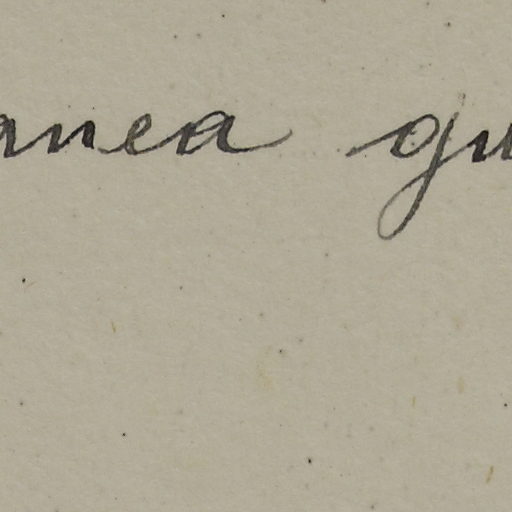 anea gu